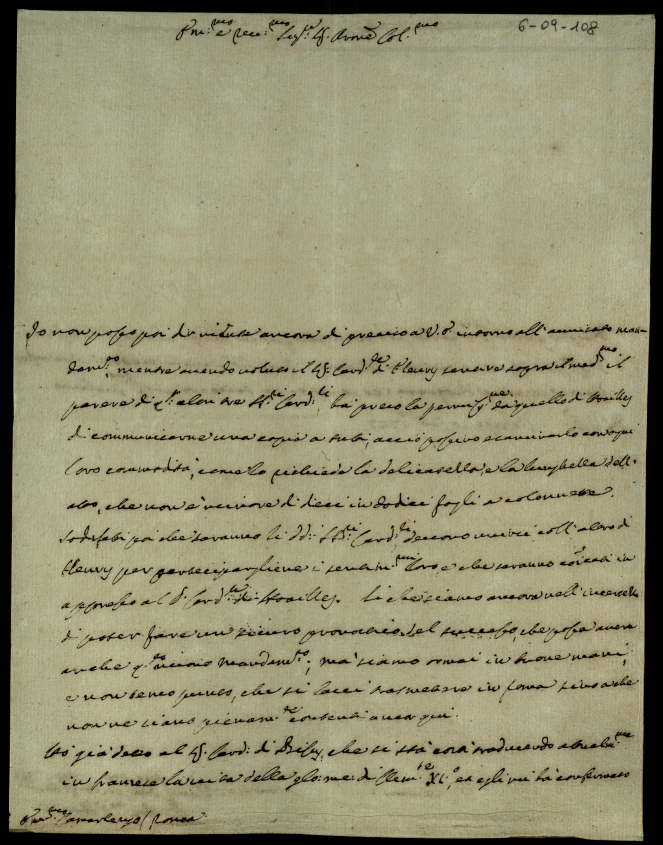 6-09-108
Em:mo e Rev:mo Sig:r Sig. Prone Col:mo
Io non posso poi dir nulla ancora di preciso a V. E. intorno all' avvisato man-
dam:to, mentre avendo voluto il Sig. Card:le de Fleury sentire sopra il med:mo il
parere di q:ti altri tre SS:ri Card:li ha preso la permiss:ne da quello di Noailles
di communicarne una copia a tutti, acciò possino esaminarlo con ogni
loro commodità, come lo richiede la delicatezza, e la lunghezza dell'
atto, che non è minore di dieci in dodici fogli a colonnette.
Sodisfatti poi che saranno li dd: SS:ri Card:li devono unirsi coll' altro di
Fleury per participargliene i sentim:ti loro, e che saranno comunicati in
appresso al S. Card:le di Noailles. Sì che siamo ancora nell' incertezza
di poter fare un sicuro pronostico del successo, che possa avere
anche q:to nuovo mandam:to; ma siamo ormai in buone mani,
e non temo punto, che si lasci trasmettere in Roma sino a che
non ne siano pienam:te contenti ancor qui.
Ho già detto al Sig. Card: di Bissy, che si stà costì traducendo attualm:te
in francese la vita della glo: me: di Clem:te XI:o, et egli mi hà confermato
Em:mo Camerlengo / Roma: